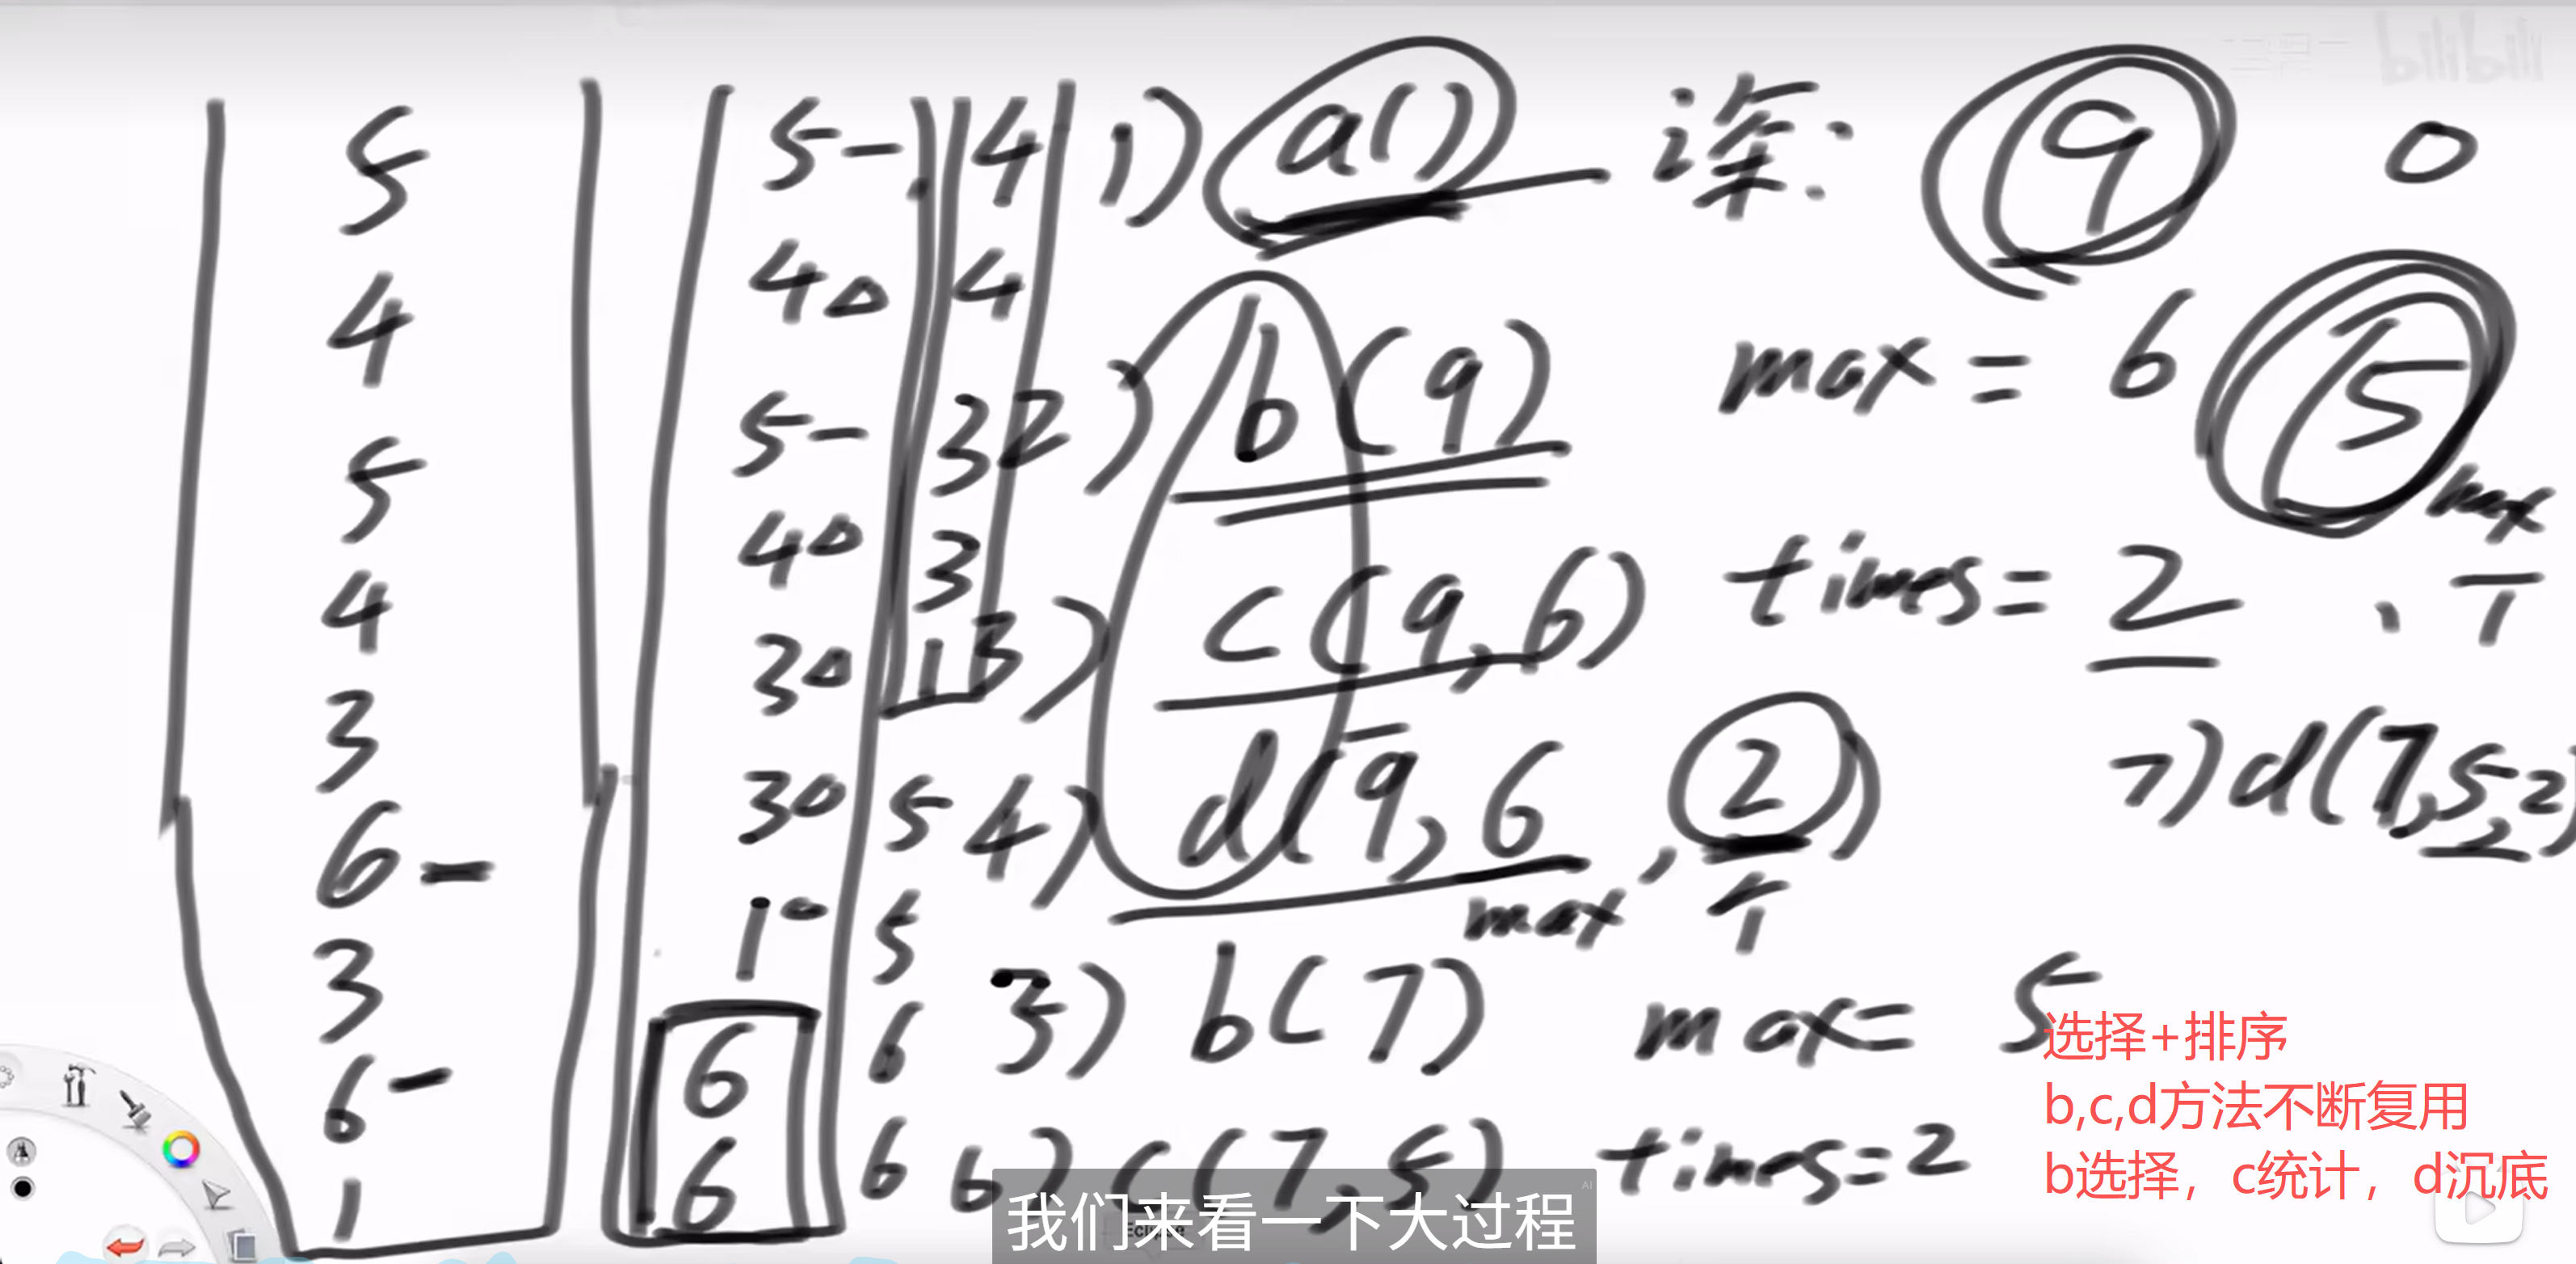 5
4
5
4
3
6 -
3
6 -
1
5 -
4△
5 -
4△
3△
3△
1△
6
6
4
4
3
3
1
5
5
6
6
1) a() 深: 9 0
2) b(9) max = 6 5 max
3) c(9,6) times = 2 、 T
4) d(9,6,2)
max T
7) d(7,5,2)
5) b(7) max = 5
6) c(7,5) times=2
选择+排序
b,c,d方法不断复用
b选择，c统计，d沉底
我们来看一下大过程
AI
bilibili